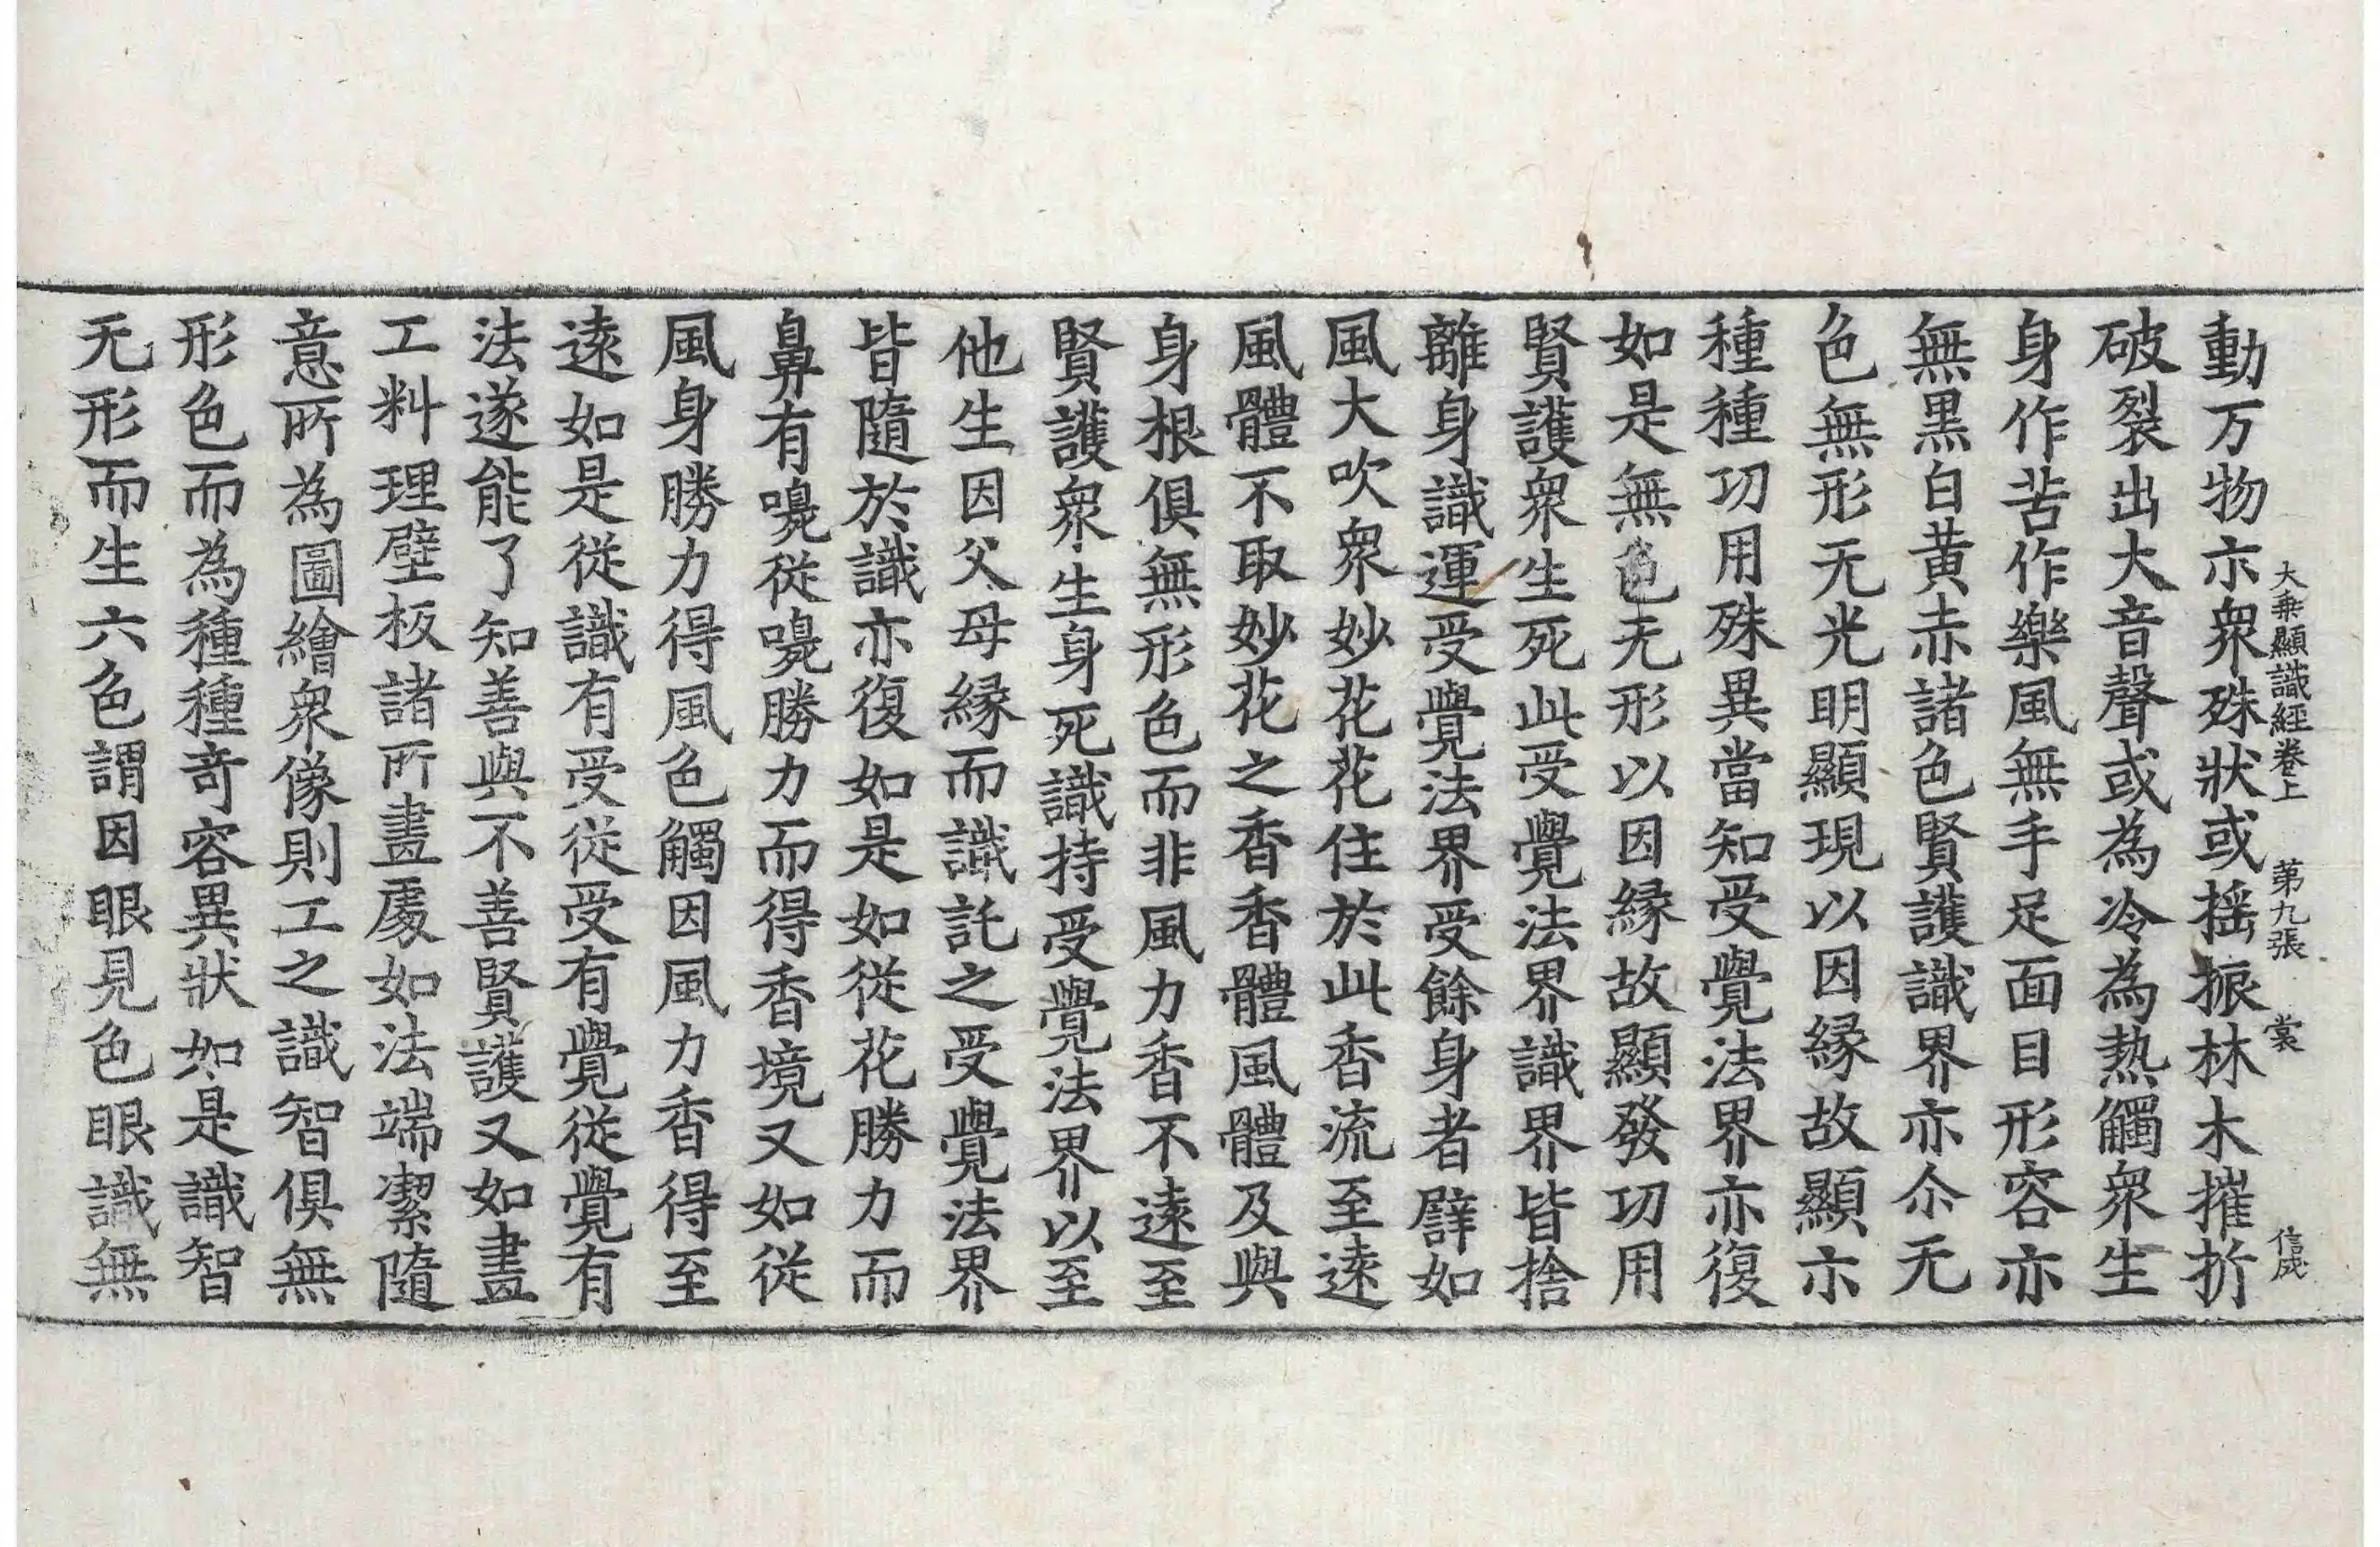 大乗顯識經卷上 第九張 裳 信成
動万物亦衆殊狀或揺振林木摧折
破裂出大音聲或為冷為熱觸衆生
身作苦作樂風無手足面目形容亦
無黒白黄赤諸色賢護識界亦尒无
色無形无光明顯現以因縁故顯亦
種種功用殊異當知受覺法界亦復
如是無色无形以因縁故顯發功用
賢護衆生死此受覺法界識界皆捨
離身識運受覺法界受餘身者辟如
風大吹衆妙花花住於此香流至逺
風體不取妙花之香香體風體及與
身根俱無形色而非風力香不逺至
賢護衆生身死識持受覺法界以至
他生因父母縁而識託之受覺法界
皆隨於識亦復如是如從花勝力而
鼻有嗅從嗅勝力而得香境又如從
風身勝力得風色觸因風力香得至
逺如是從識有受從受有覺從覺有
法遂能了知善與不善賢護又如畫
工料理壁板諸所畫處如法端潔隨
意所為圖繪衆像則工之識智俱無
形色而為種種奇容異狀如是識智
无形而生六色謂因眼見色眼識無